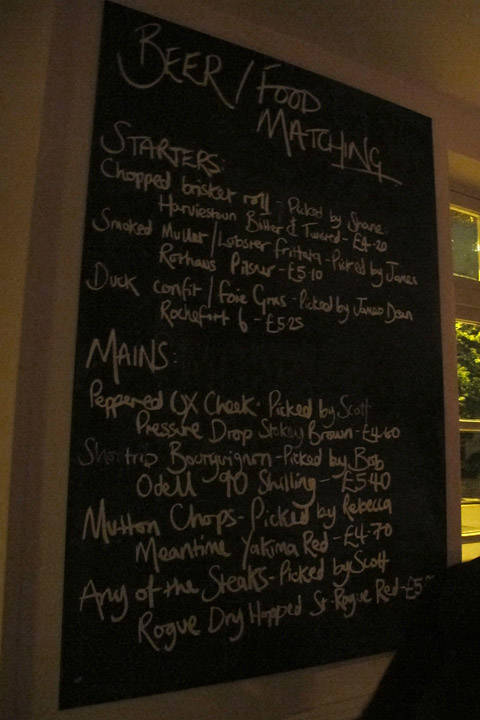 BEER/FOOD
MATCHING
STARTERS:
Chopped brisket roll - Picked by Shane
Harviestoun Bitter & Twisted - £4.20
Smoked Mullet/Lobster frittata - Picked by James
Rothaus Pilsner - £5.10
Duck confit/Foie Gras - Picked by James Dean
Rochefort 6 - £5.25
MAINS:
Peppered OX Cheek - Picked by Scott
Pressure Drop Stokey Brown - £4.60
Shortrib Bourguignon - Picked by Bob
Odell 90 Shilling - £5.40
Mutton Chops - Picked by Rebecca
Meantime Yakima Red - £4.70
Any of the Steaks - Picked by Scott
Rogue Dry Hopped St. Rogue Red - £5